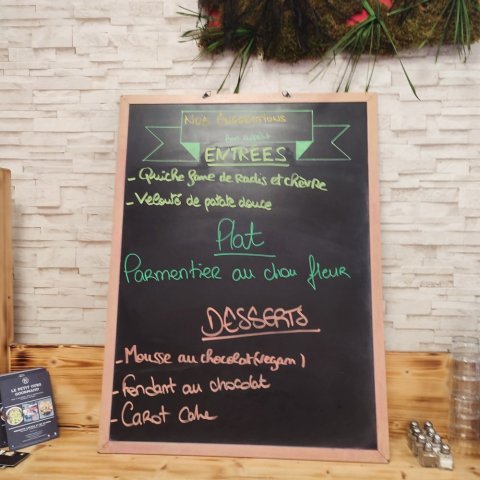 NOS SUGGESTIONS
Bon appétit
ENTREES
- Quiche fane de Radis et chèvre
- Velouté de patate douce
Plat
Parmentier au chou fleur
DESSERTS
- Mousse au chocolat (vegan)
- Fondant au chocolat
- Carot Cake
LE PETIT VERS
GOURMAND